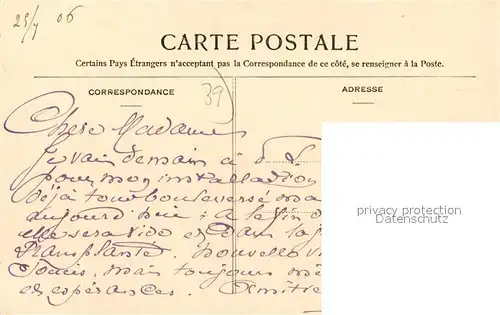 25/7 06
CARTE POSTALE
Certains Pays Étrangers n'acceptent pas la Correspondance de ce côté, se renseigner à la Poste.
CORRESPONDANCE
39
ADRESSE
Chere Madame
Je vais demain à d L
pour mon installation
déjà tout bouleversé
aujourd'hui : A la fin d
elle sera vide et dans la
transplanté. Nouvelle
Soucis, mais toujours
et espérances. Amitié
privacy protection